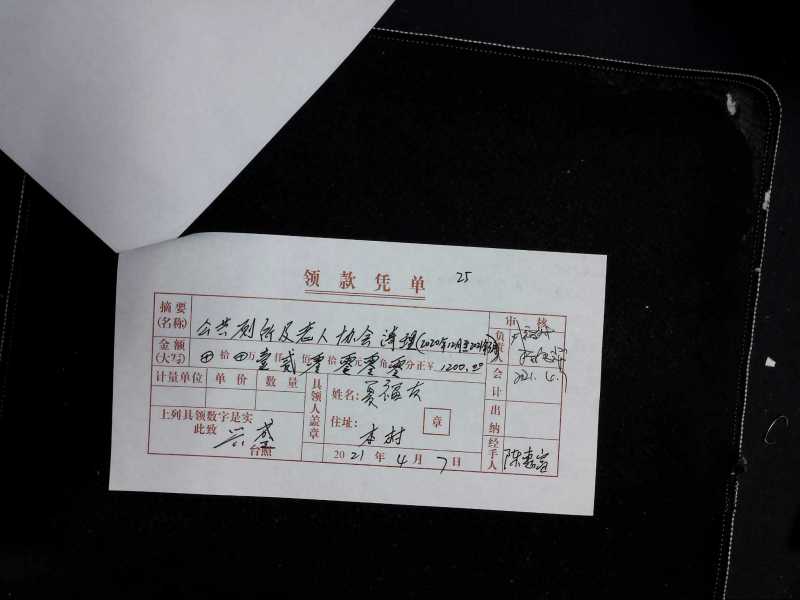 领款凭单 25
摘要(名称) 公共厕所及老人协会清理(2020年12月至2021年
审核
金额(大写) 拾 万壹仟贰佰零拾零元零角零分正¥ 1200.00
负责人
会计 2021.4.
计量单位 单价 数量
具领人盖章
姓名: 福友
出纳
上列具领数字是实
此致
台照
住址: 本村 章
经手人 陈惠
2021年4月7日